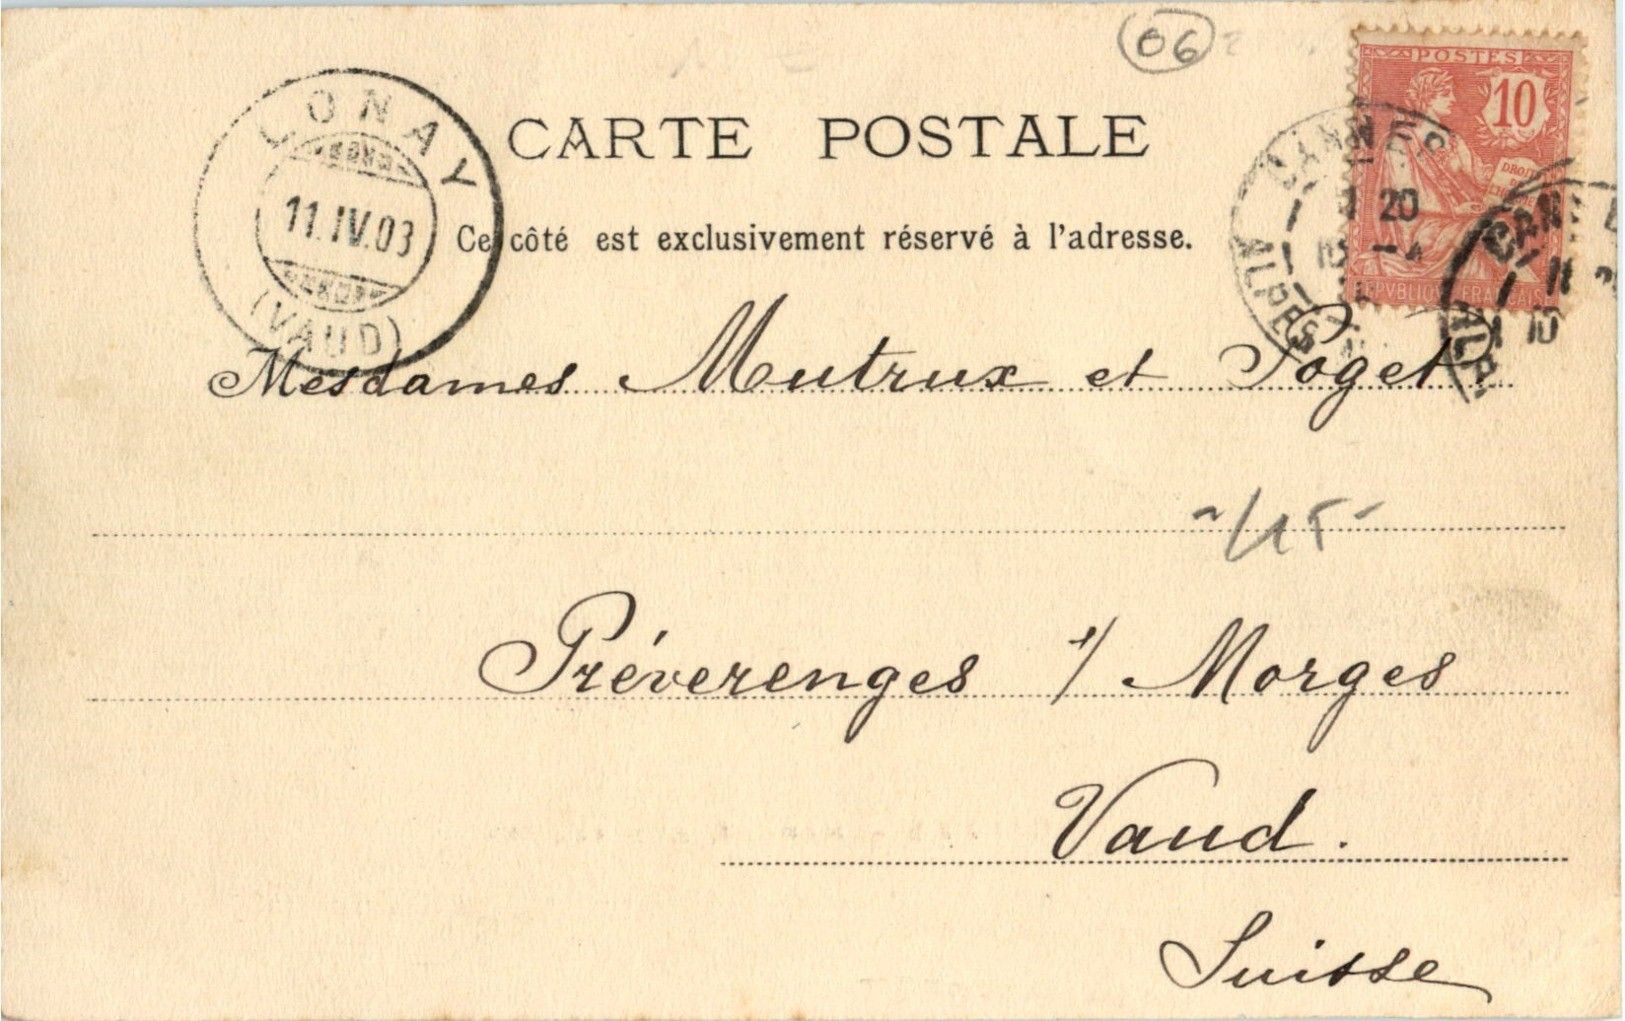 06
POSTES
10
DROITS
REPVBLIQUE FRANÇAISE
LONAY
11.IV.03
(VAUD)
CARTE POSTALE
CANNES
20
ALPES
CANNES
Ce côté est exclusivement réservé à l'adresse.
Mesdames Mutrux et Poget
15-
Préverenges s/ Morges
Vaud.
Suisse